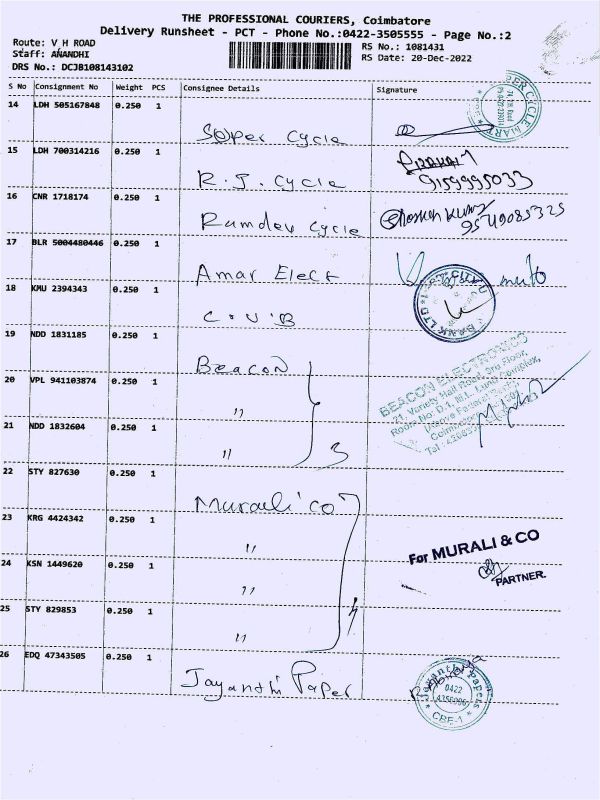 THE PROFESSIONAL COURIERS, Coimbatore
Delivery Runsheet - PCT - Phone No.:0422-3505555 - Page No.:2
Route: V H ROAD
RS No.: 1081431
Staff: ANANDHI
RS Date: 20-Dec-2022
DRS No.: DCJB108143102
S No Consignment No Weight PCS Consignee Details Signature
14 LDH 505167848 0.250 1
Soper Cycle
15 LDH 700314216 0.250 1
R.J. Cycle 9159995033
16 CNR 1718174 0.250 1
Ramdev Cycle
17 BLR 5004480446 0.250 1
Amar Elect
18 KMU 2394343 0.250 1
C.U.B
19 NDD 1831185 0.250 1
Beacon
BEACON ELECTRONICS
20 VPL 941103874 0.250 1
"
21 NDD 1832604 0.250 1
" 3
22 STY 827630 0.250 1
Murali co
23 KRG 4424342 0.250 1
"
For MURALI & CO
24 KSN 1449620 0.250 1
"
PARTNER.
25 STY 829853 0.250 1
" 4
26 EDQ 47343505 0.250 1
Jayanthi Paper
Jayanthi Papers
0422
CBE-1